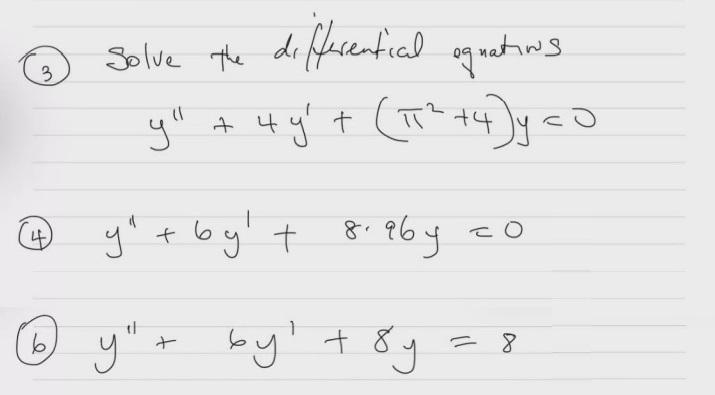 (3) Solve the differential equations
y'' + 4y' + (π² + 4)y = 0
(4) y'' + 6y' + 8.96y = 0
(6) y'' + 6y' + 8y = 8